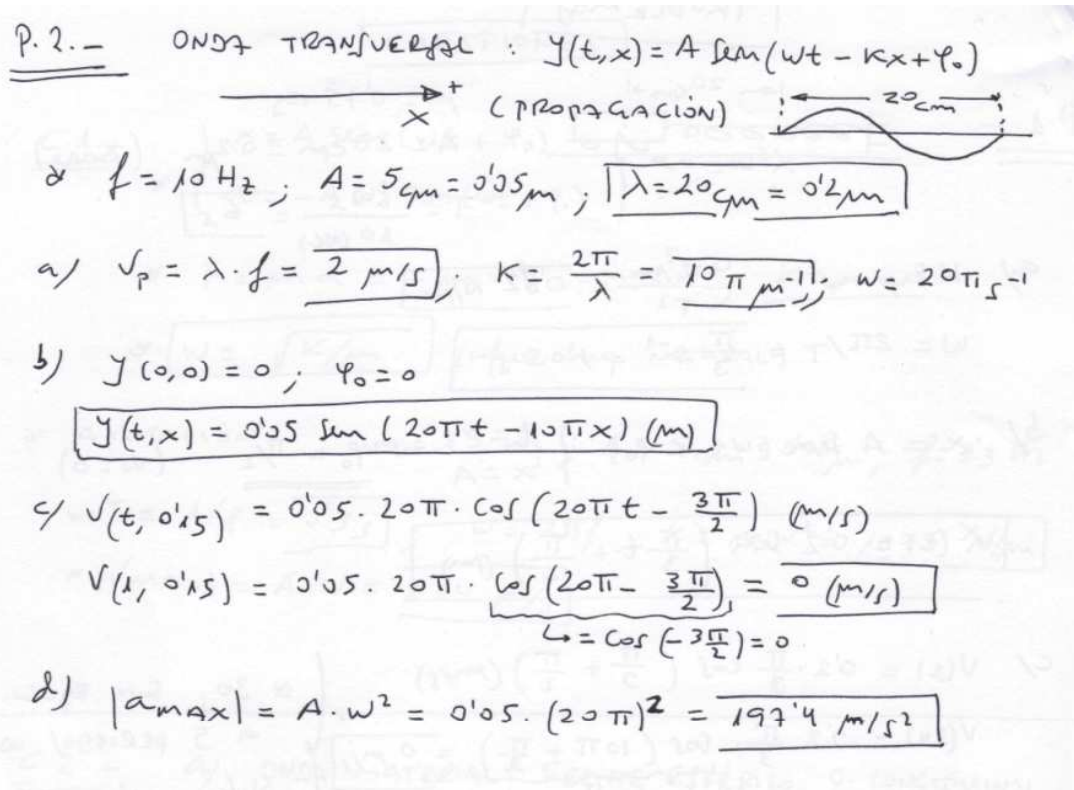 P.2.- ONDA TRANSVERSAL : y(t,x) = A sen(ωt - Kx + φ₀)
x + (PROPAGACIÓN) 20 cm
f = 10 Hz ; A = 5 cm = 0'05 m ; λ = 20 cm = 0'2 m
a/ Vp = λ · f = 2 m/s ; K = 2π/λ = 10π m⁻¹ ; ω = 20π s⁻¹
b/ y(0,0) = 0 ; φ₀ = 0
y(t,x) = 0'05 sen (20πt - 10πx) (m)
c/ V(t, 0'15) = 0'05 · 20π · cos(20πt - 3π/2) (m/s)
V(1, 0'15) = 0'05 · 20π · cos(20π - 3π/2) = 0 (m/s)
↳ = cos(-3π/2) = 0
d/ |aMAX| = A · ω² = 0'05 · (20π)² = 197'4 m/s²